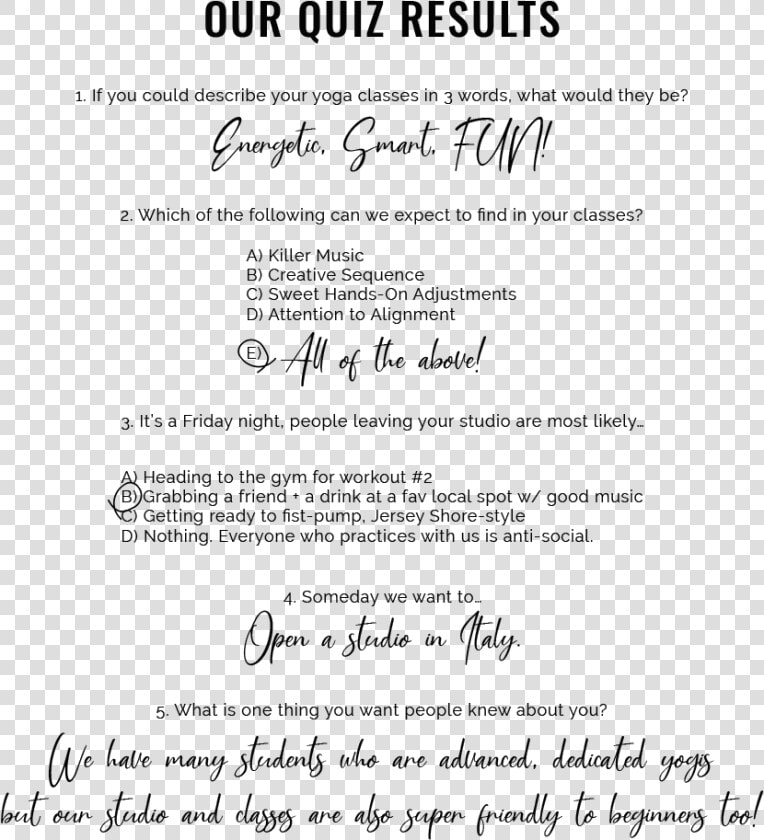 OUR QUIZ RESULTS
1. If you could describe your yoga classes in 3 words, what would they be?
Energetic, Smart, FUN!
2. Which of the following can we expect to find in your classes?
A) Killer Music
B) Creative Sequence
C) Sweet Hands-On Adjustments
D) Attention to Alignment
E) All of the above!
3. It's a Friday night, people leaving your studio are most likely...
A) Heading to the gym for workout #2
B) Grabbing a friend + a drink at a fav local spot w/ good music
C) Getting ready to fist-pump, Jersey Shore-style
D) Nothing. Everyone who practices with us is anti-social.
4. Someday we want to...
Open a studio in Italy.
5. What is one thing you want people knew about you?
We have many students who are advanced, dedicated yogis
but our studio and classes are also super friendly to beginners too!